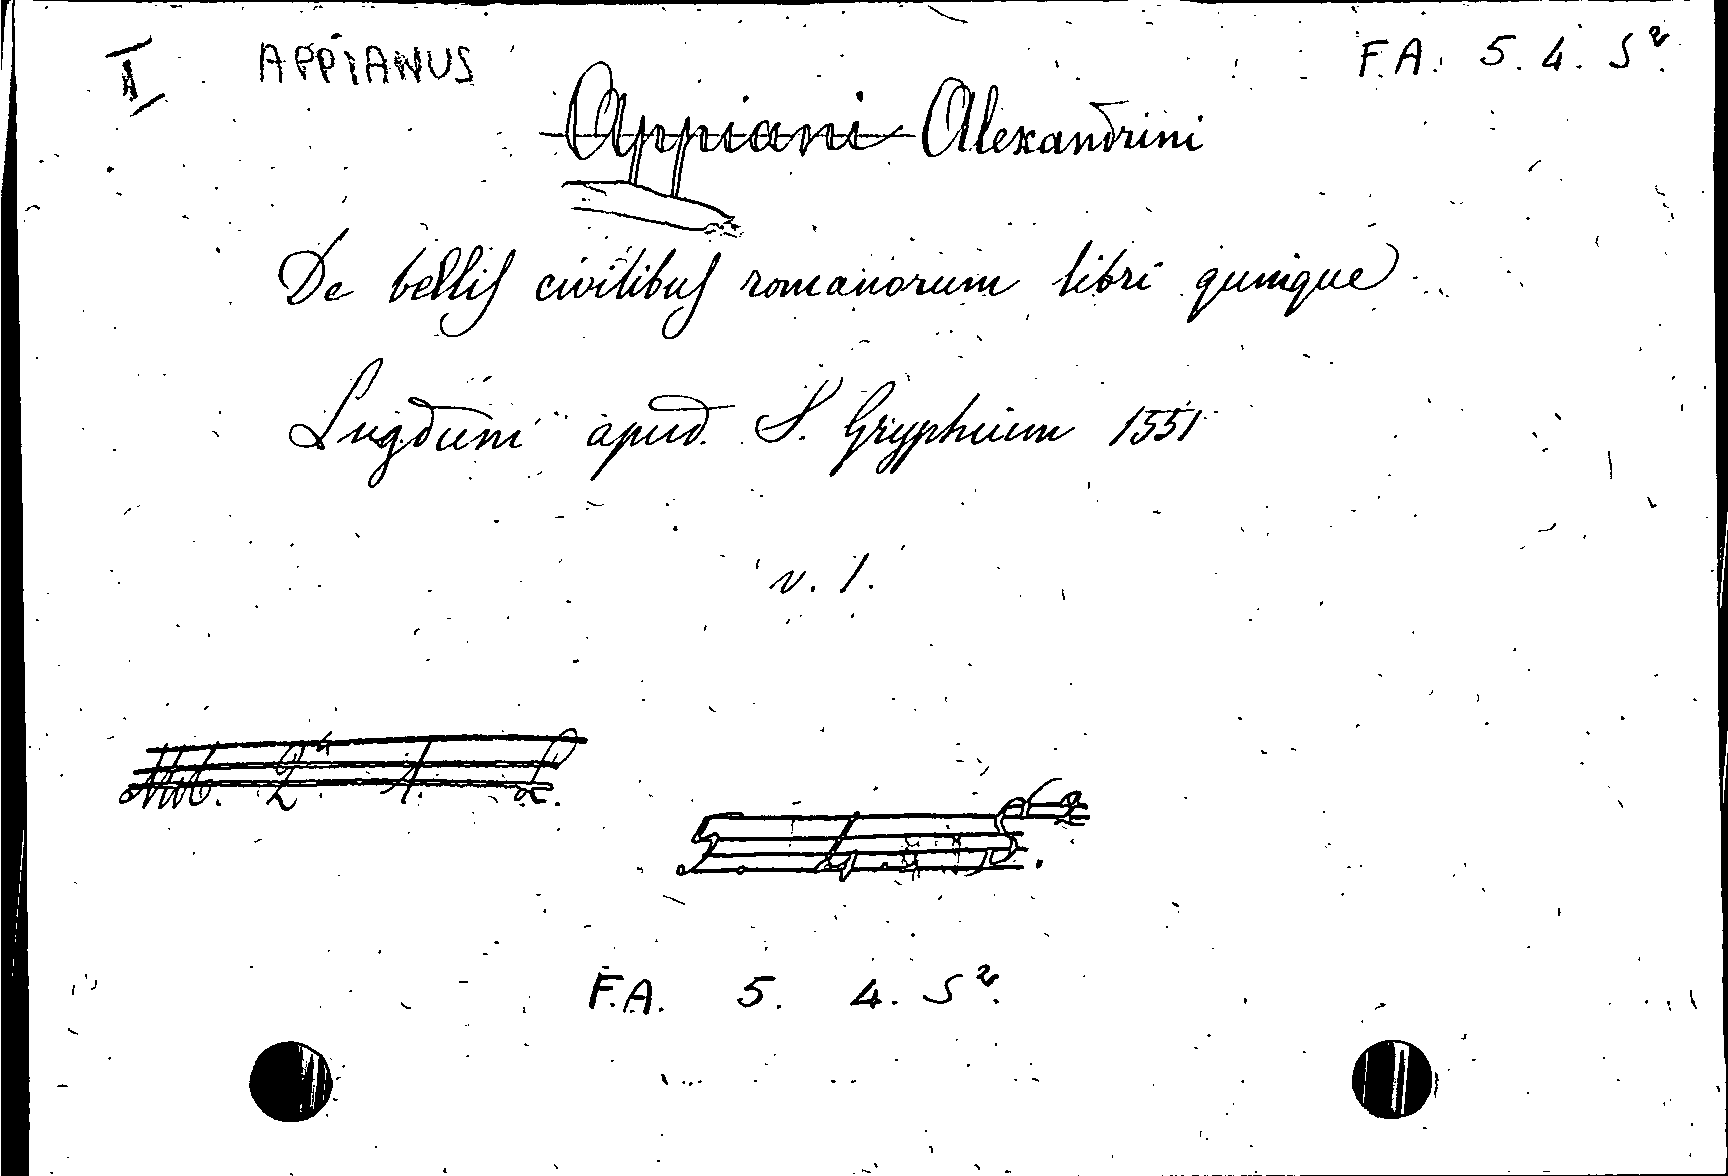 I APPIANUS F.A. 5. 4. S².
Appiani Alexandrini
De bellis civilibus romanorum libri quinque
Lugduni apud. S. Gryphium 1551
v. 1.
F.A. 5. 4. S².